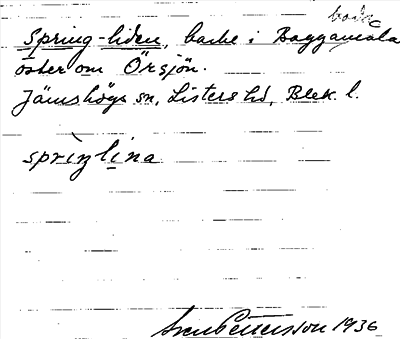 Spring-liden, backe i Baggamåla
öster om Örsjön.
Jämshögs sn, Listers hd, Blek. l.
sprìŋlina
Sven Pettersson 1936